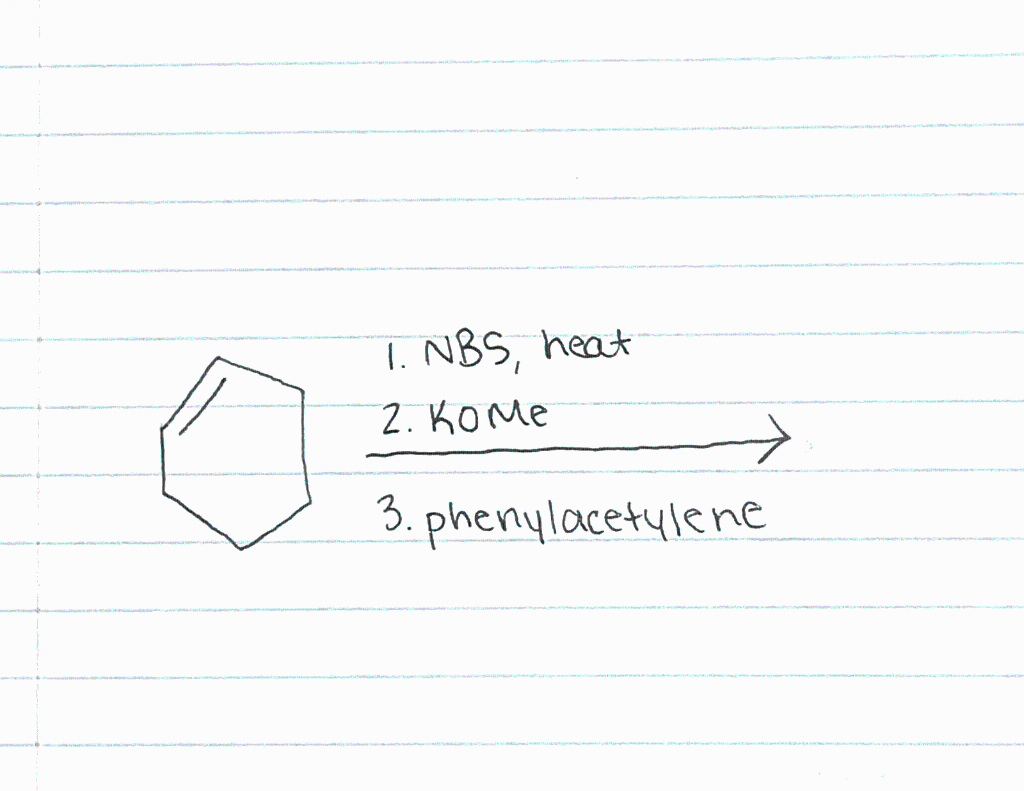 1. NBS, heat
2. KOMe
3. phenylacetylene